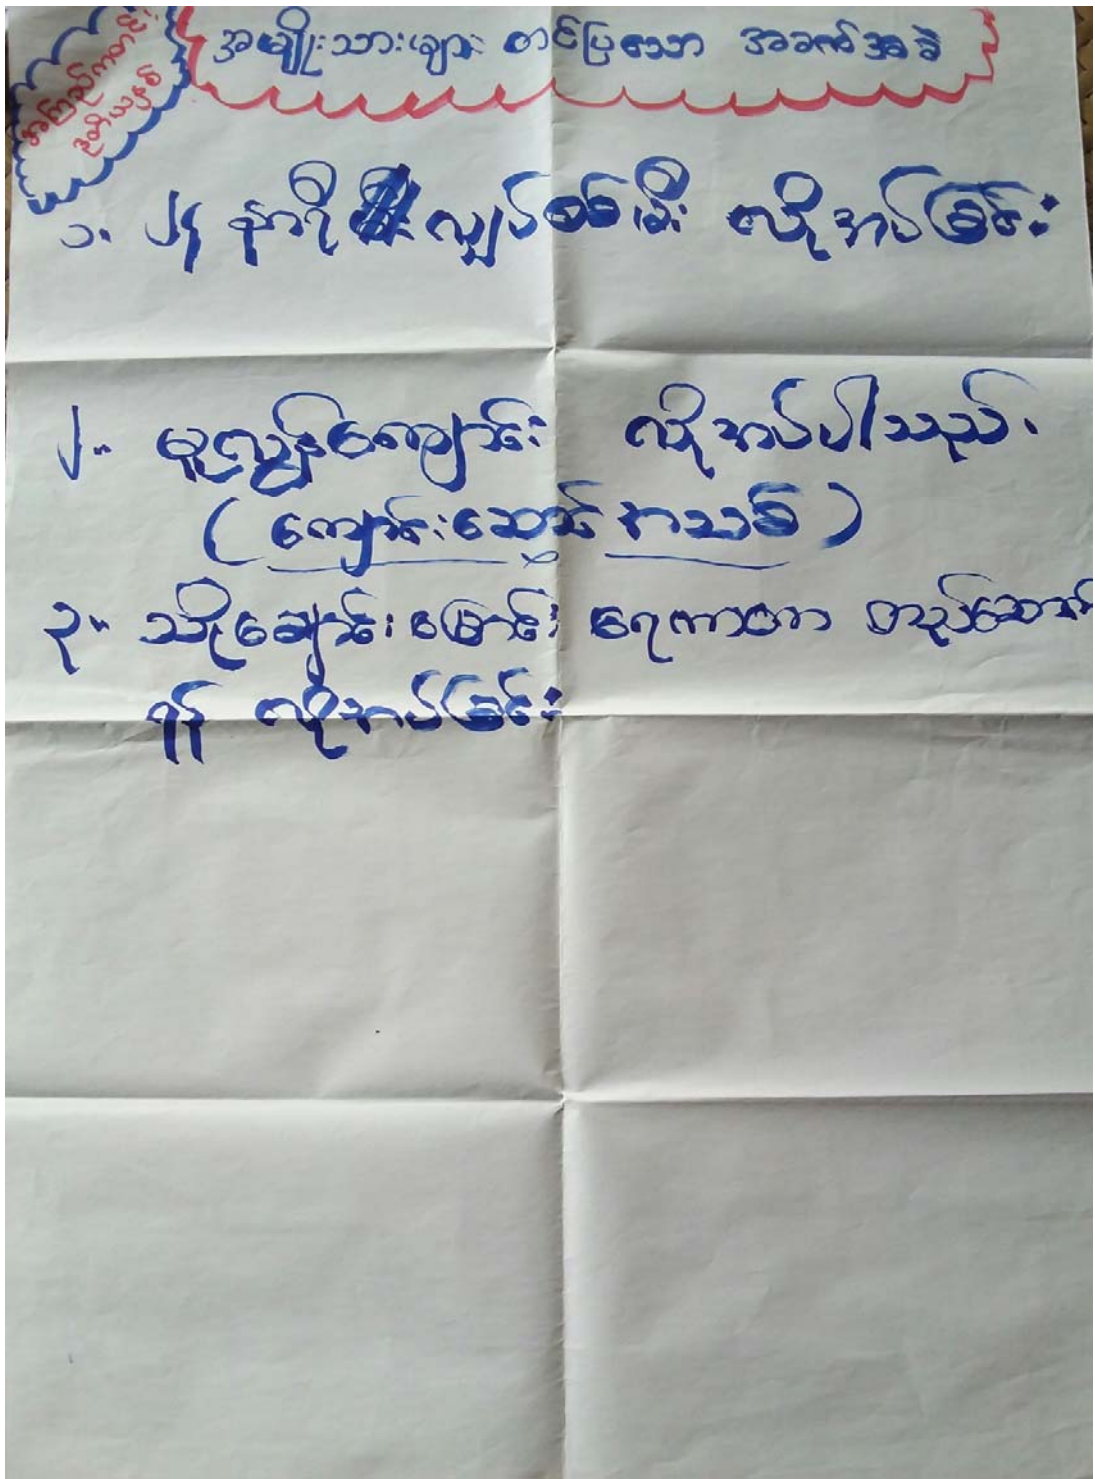 အမျိုးသားများ တင်ပြသော အခက်အခဲ
၁. ၂၄ နာရီ လျှပ်စစ်မီး လိုအပ်ခြင်း
၂။ မူလွန်ကျောင်း လိုအပ်ပါသည်.
(ကျောင်းဆောင် အသစ်)
၃။ သိုချောင်းမြောင်း ရေကာတာ တည်ဆောက်
ရန် လိုအပ်ခြင်း